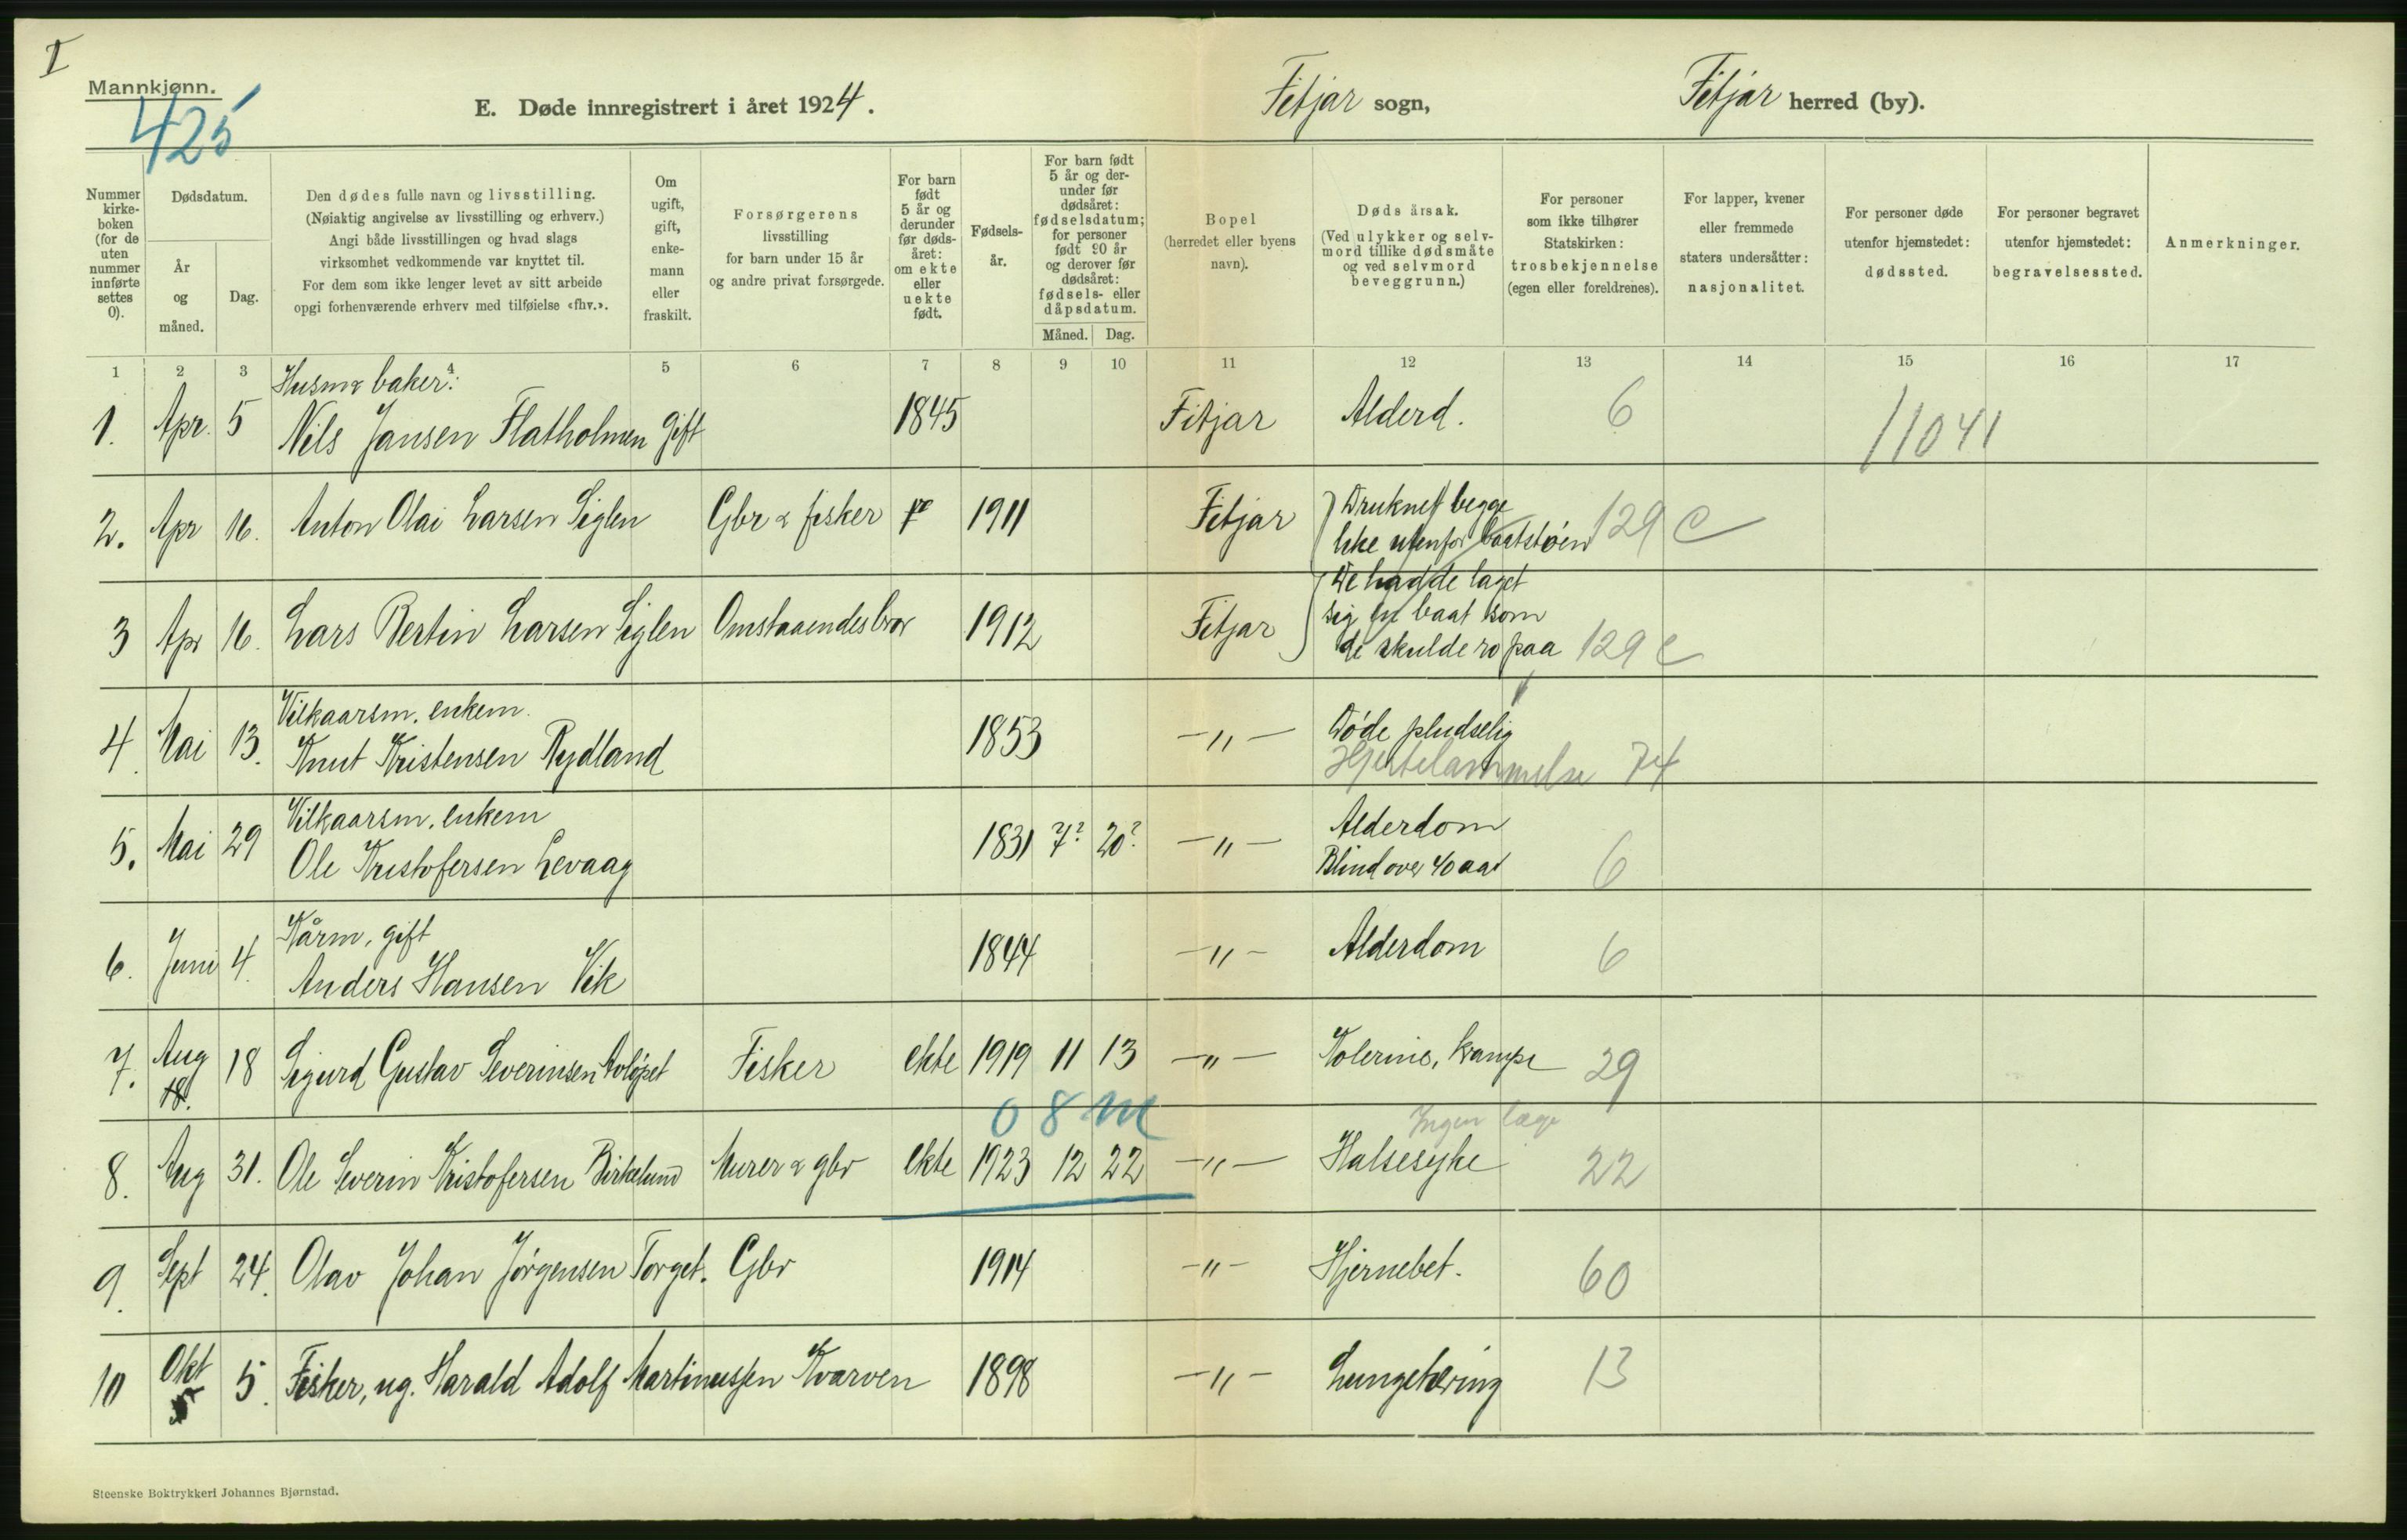 I
Mannkjønn.
425
E. Døde innregistrert i året 1924.
Fitjar sogn,
Fitjar herred (by).
Nummer kirke-boken (for de uten nummer innførte settes 0).
Dødsdatum.
År og måned.
Dag.
Den dødes fulle navn og livsstilling.
(Nøiaktig angivelse av livsstilling og erhverv.)
Angi både livsstillingen og hvad slags
virksomhet vedkommende var knyttet til.
For dem som ikke lenger levet av sitt arbeide
opgi forhenværende erhverv med tilføielse «fhv.».
Om ugift, gift, enke-mann eller fraskilt.
Forsørgerens
livsstilling
for barn under 15 år
og andre privat forsørgede.
For barn født 5 år og derunder før døds-året: om ekte eller uekte født.
Fødsels-år.
For barn født 5 år og der-under før dødsåret: fødselsdatum; for personer født 90 år og derover før dødsåret: fødsels- eller dåpsdatum.
Måned. Dag.
Bopel
(herredet eller byens
navn).
Døds årsak.
(Ved ulykker og selv-
mord tillike dødsmåte
og ved selvmord
beveggrunn.)
For personer
som ikke tilhører
Statskirken:
trosbekjennelse
(egen eller foreldrenes).
For lapper, kvener
eller fremmede
staters undersåtter:
nasjonalitet.
For personer døde
utenfor hjemstedet:
dødssted.
For personer begravet
utenfor hjemstedet:
begravelsessted.
Anmerkninger.
1 2 3 4 5 6 7 8 9 10 11 12 13 14 15 16 17
Husm & baker:
1. Apr. 5 Nils Jansen Flatholmen gift 1845 Fitjar Alderd. 6 11041
2. Apr 16. Anton Olai Larsen Siglen Gbr & fisker 1911 Fitjar Druknet begge
like utenfor baatstøen 129 C
3 Apr 16. Lars Bertin Larsen Siglen Omstaaendes bror 1912 Fitjar De hadde laget
sig en baat som
de skulde ro paa 129 C
Vilkaarsm. enkem.
4. Mai 13. Knut Kristensen Rydland 1853 -"- Døde pludselig
Hjertelammelse 74
Vilkaarsm. enkem
5. Mai 29 Ole Kristofersen Levaag 1831 7? 20? -"- Alderdom
Blind over 40 aar 6
Kårm, gift
6. Juni 4. Anders Hansen Vik 1844 -"- Alderdom 6
7. Aug 18 Sigurd Gustav Severinsen Avløpet Fisker ekte 1919 11 13 -"- Kolerine, krampe 29
18.
0 8 m
Ingen læge
8. Aug 31. Ole Severin Kristofersen Birkelund Murer & gbr ekte 1923 12 22 -"- Halsesyke 22
9. Sept 24. Olav Johan Jørgensen Torget. Gbr 1914 -"- Hjernebet. 60
10 Okt 5. Fisker, ug. Harald Adolf Martinussen Kvarven 1898 -"- Lungetæring 13
5
Steenske Boktrykkeri Johannes Bjørnstad.